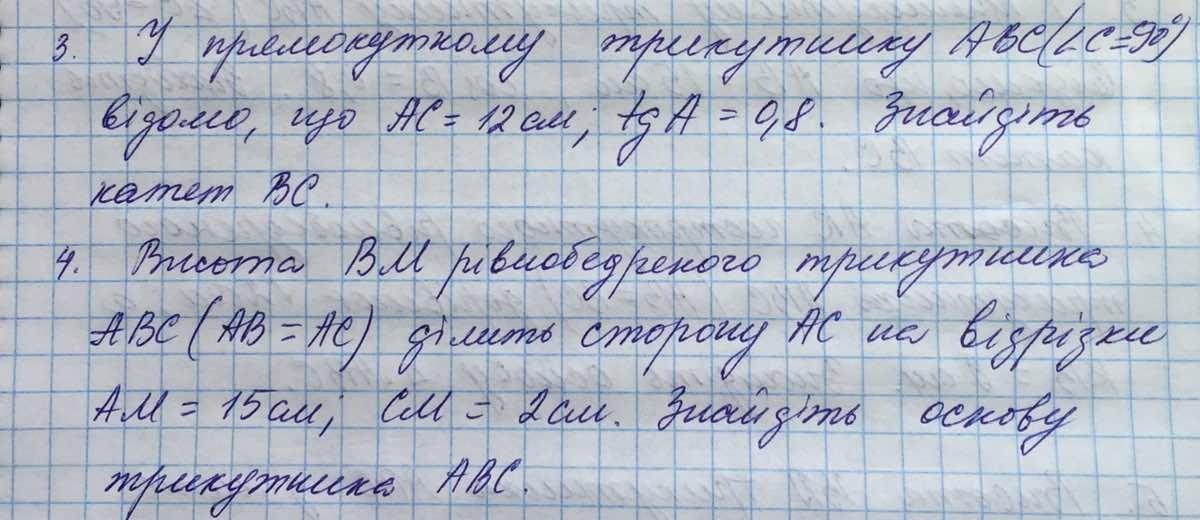 3. У прямокутному трикутнику ABC (∠C=90°)
відомо, що AC = 12 см; tg A = 0,8. Знайдіть
катет BC.
4. Висота BM рівнобедреного трикутника
ABC (AB = AC) ділить сторону AC на відрізки
AM = 15 см; CM = 2 см. Знайдіть основу
трикутника ABC.